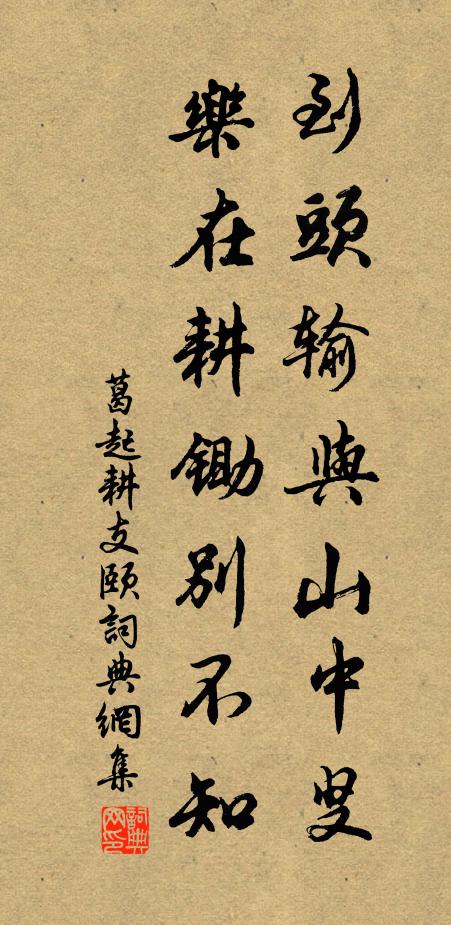 到頭输與山中叟
樂在耕鋤別不知
葛起耕支頤詞典網集
詞典网印